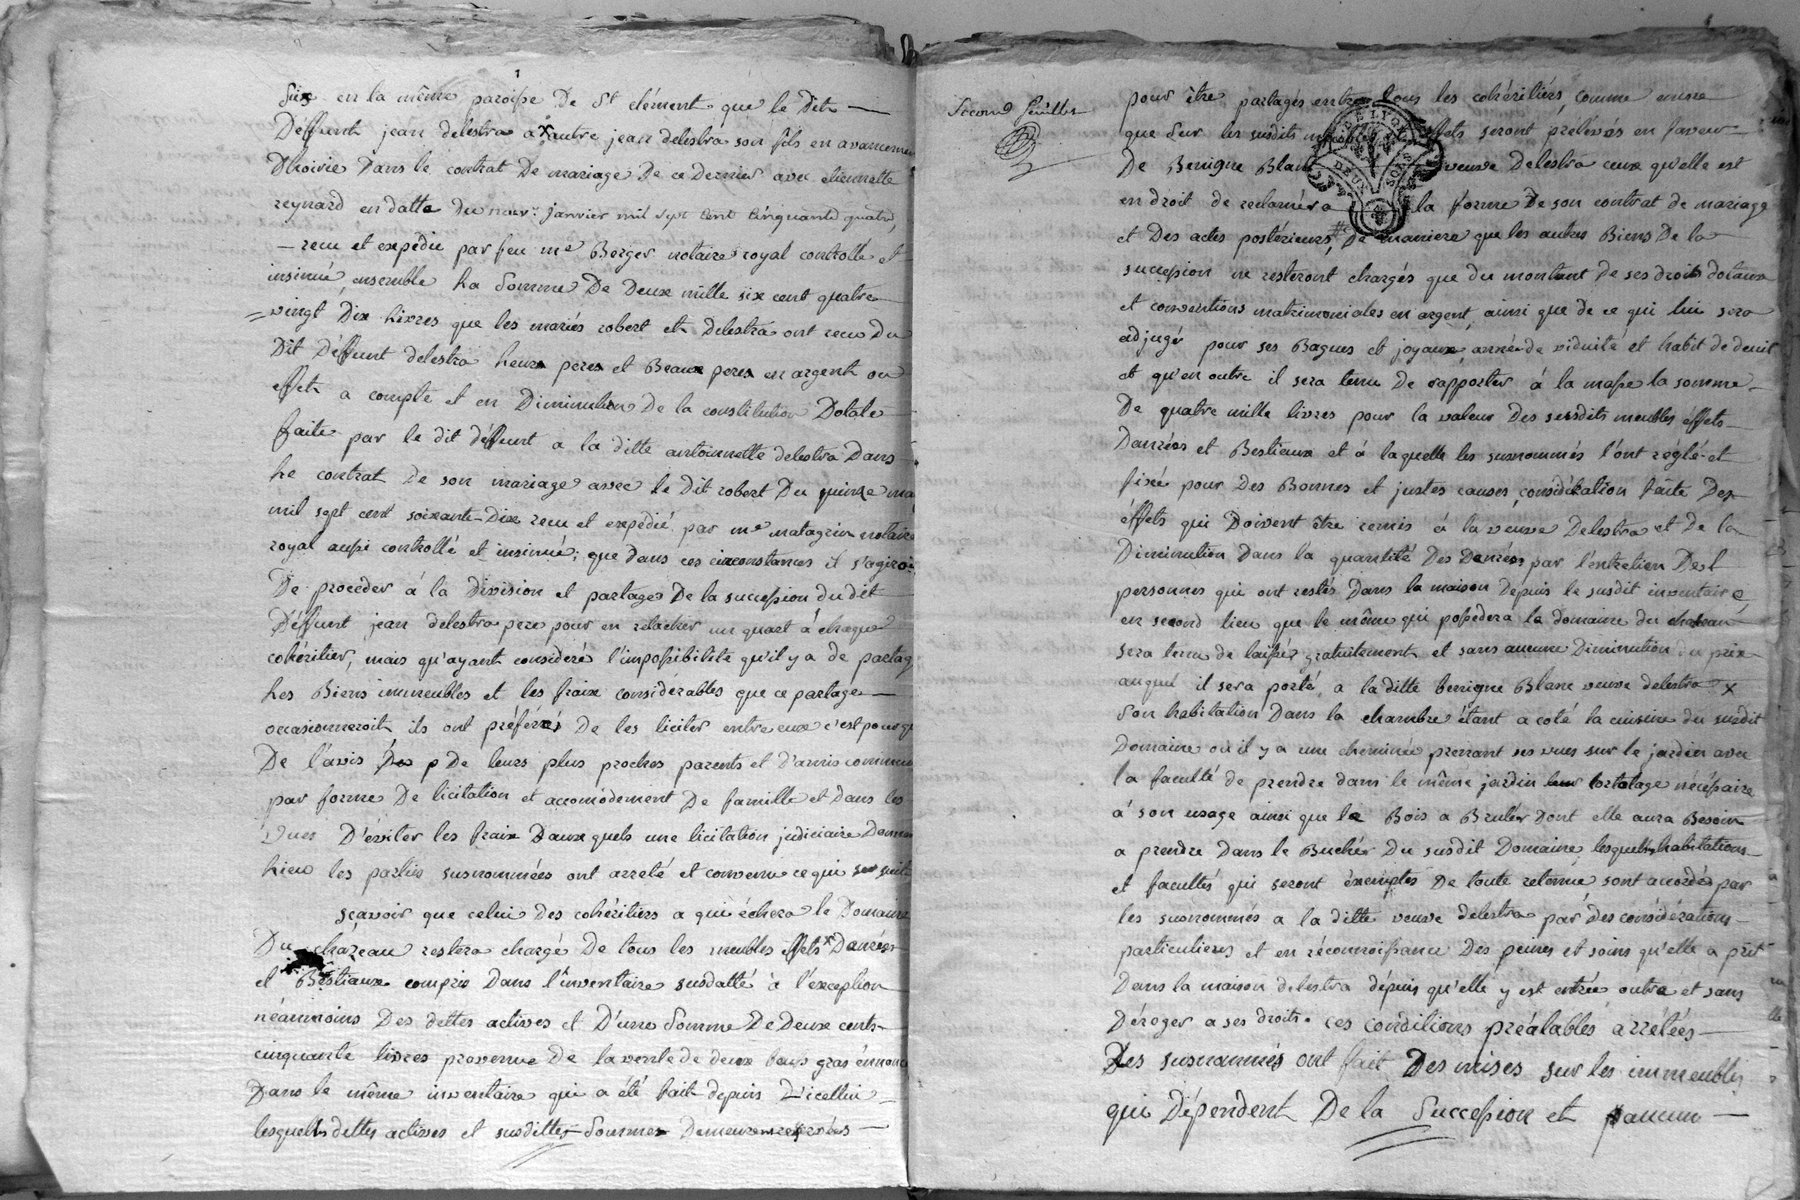 Six en la même paroisse De St clément que le Dit
Déffunt jean delestra a autre jean delestra son fils en avanceme
D'hoirie Dans le contrat De mariage De ce Dernier avec etiennette
reynard en datte du janvier mil sept cent cinquante quatre,
recu et expédié par feu me Berger notaire royal controllé et
insinué, ensemble La Somme De Deux mille six cent quatre
vingt Dix Livres que les mariés robert et Delestra ont recu Du
Dit Déffunt delestra leurs peres et Beaux peres en argent ou
effets a compte et en Diminution De la constitution Dotale
faite par le dit déffunt a la ditte antoinnette delestra Dans
Le contrat De son mariage avec le Dit robert Du quinze ma
mil sept cent soixante-Dix recu et expédié par me matagrin notaire
royal aussi controllé et insinué; que dans ces circonstances il s'agiroit
De proceder à la Division et partage De la succession du dit
Déffunt jean delestra pere pour en relacher un quart à chaque
cohéritier, mais qu'ayant consideré l'impossibilité qu'il y a de partag
Les Biens immeubles et les fraix considérables que ce partage
occasionneroit, ils ont préférés De les liciter entre eux c'est pourq
De l'avis De leurs plus proches parents et D'amis commun
par forme De licitation et accomodement De famille et Dans les
vues D'eviter les fraix Dauxquels une licitation judiciaire Donne
Lieu les parties susnommées ont arreté et convenu ce qui suit
sçavoir que celui Des cohéritiers a qui échera le Domaine
Du chazeau restera chargé De tous les meubles effets Danrées
et Bestiaux compris Dans l'inventaire susdatté à l'exception
néanmoins Des dettes actives et D'une Somme De Deux cents
cinquante livres provenue De la vente de deux gras énnonc
Dans le même inventaire qui a été fait depuis D'icelluy
lesquelles dettes actives et susdittes Sommes Demeurent
Second feuillet
pour être partagés entre tous les cohéritiers, comme encore
que Sur les susdits seront prélévés en faveur
De Benigne Blanc veuve Delestra ceux qu'elle est
en droit de reclamér a la forme De son contrat de mariage
et Des actes postérieurs, De maniere que les autres Biens De la
succession ne resteront chargés que du montant De ses droits dotaux
et conventions matrimoniales en argent, ainsi que de ce qui lui sera
adjugé pour ses Bagues et joyaux, année de viduité et habit de deuil
et qu'en outre il sera tenu De rapporter à la masse la somme
De quatre mille livres pour la valeur Des susdits meubles éffets
Danrées et Bestiaux et à laquelle les susnommés l'ont réglé et
fixé pour Des Bonnes et justes causes, considération faite Des
éffets qui Doivent être remis à la veuve Delestra et De la
Diminution Dans la quantité Des Denrées par l'entretien Des
personnes qui ont restés Dans la maison Depuis le susdit inventaire,
en second lieu que le même qui possedera le domaine du chateau
sera tenu de laisser gratuitement et sans aucune Diminution du prix
auquel il sera porté, a la ditte benigne Blanc veuve delestra
Son habitation Dans la chambre étant a coté la cuisine du susdit
Domaine ou il y a une cheminée prenant ses vues sur le jardin avec
la faculté de prendre dans le même jardin l'ortolage nécéssaire
à son usage ainsi que le Bois a Bruler Dont elle aura Besoin
a prendre Dans le Buchér Du susdit Domaine, lesquels habitations
et facultés qui seront éxemptes De toute retenue sont accordés par
les susnommés a la ditte veuve delestra par Des considérations
particulieres et en réconnoissance Des peines et soins qu'elle a prit
Dans la maison delestra dépuis qu'elle y est entrée outre et sans
Déroger a ses droits. ces conditions préalables arrétées
Les susnommés ont fait Des mises sur les immeubles
qui Dépendent De la Succession et